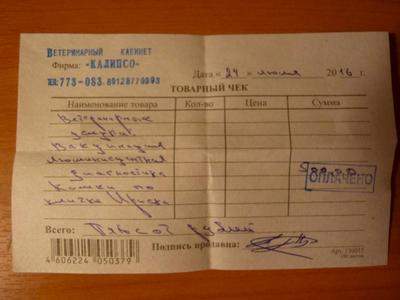 ВЕТЕРИНАРНЫЙ КАБИНЕТ
Фирма: «КАЛИПСО»
ТЕЛ: 773-083, 89128770393
Дата « 24 » июля 2016 г.
ТОВАРНЫЙ ЧЕК
Наименование товара Кол-во Цена Сумма
Ветеринарные
услуги
Вакцинация
Люминисцентная
диагностика
Кошки по
кличке Ириска
ОПЛАЧЕНО
Всего: Пятьсот рублей
Подпись продавца:
4 606224 050379